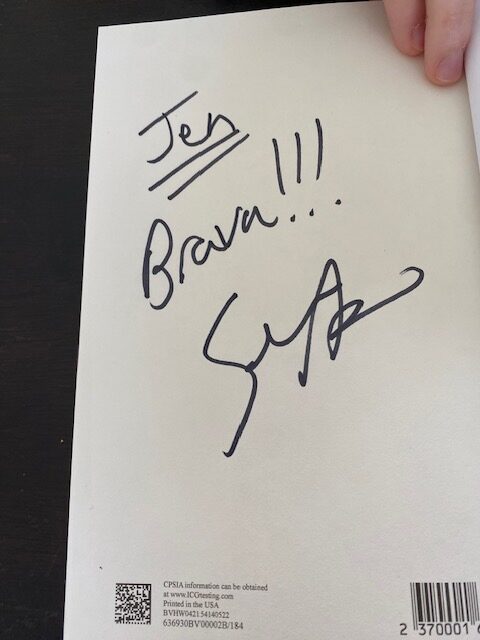 Jen
Brava!!!
CPSIA information can be obtained
at www.ICGtesting.com
Printed in the USA
BVHW042154140522
636930BV00002B/184
2 370001